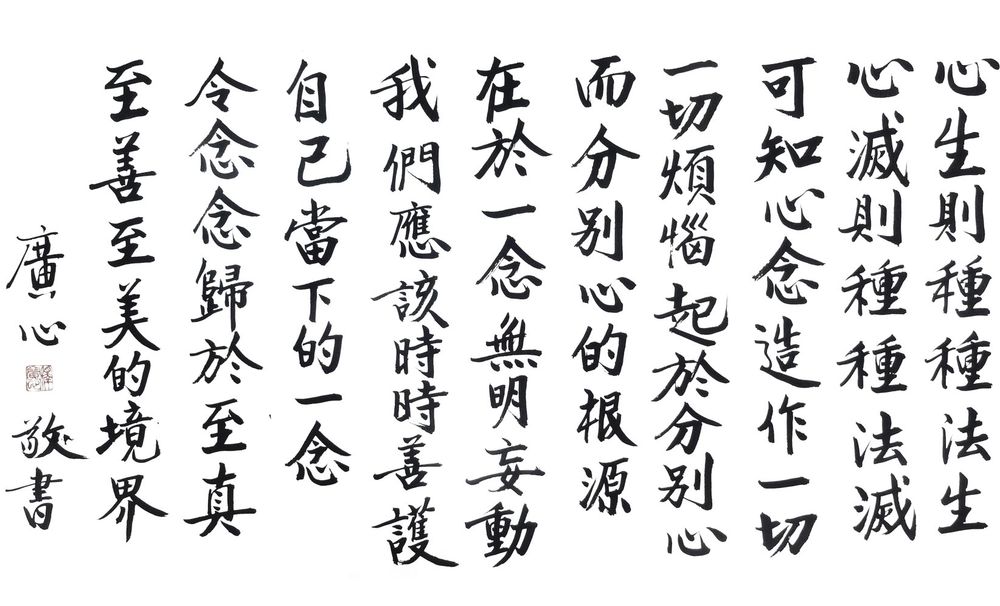 心生則種種法生
心滅則種種法滅
可知心念造作一切
一切煩惱起於分別心
而分別心的根源
在於一念無明妄動
我們應該時時善護
自己當下的一念
令念念歸於至真
至善至美的境界
廣心
敬書